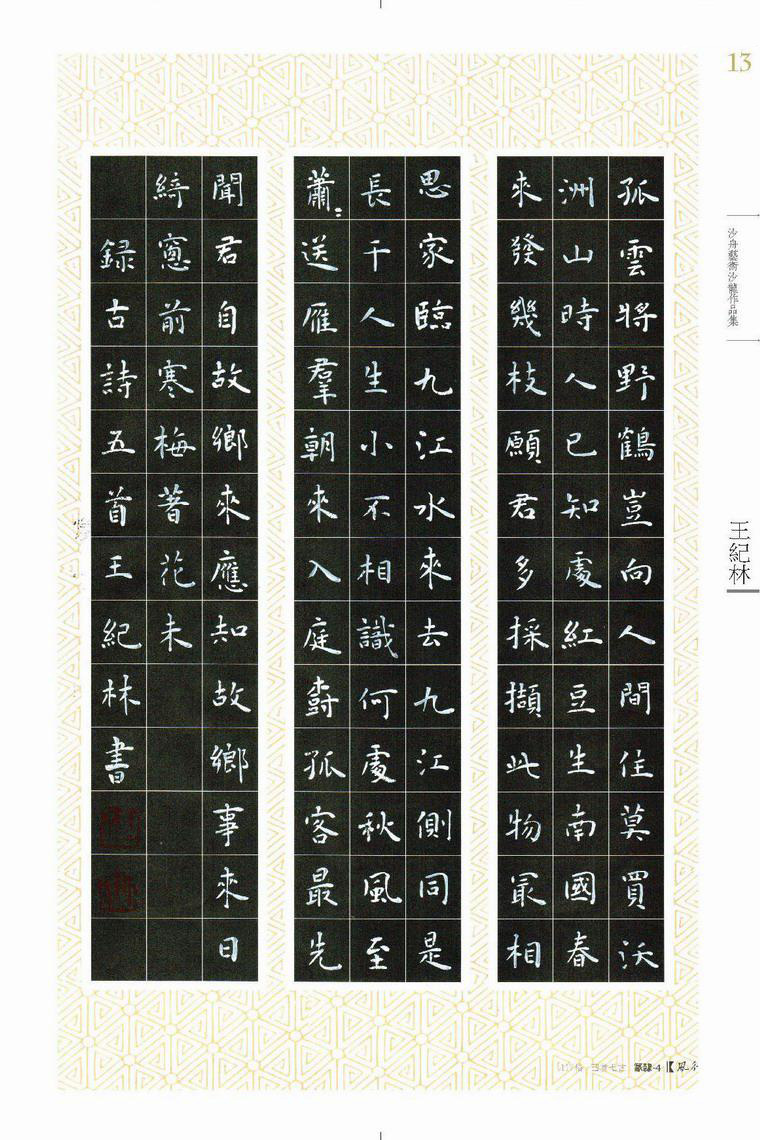 13
沙舟藝術沙龍作品集
王紀林
孤雲將野鶴豈向人間住莫買沃
洲山時人已知處紅豆生南國春
來發幾枝願君多採擷此物最相
思家臨九江水來去九江側同是
長干人生小不相識何處秋風至
蕭〻送雁羣朝來入庭樹孤客最先
聞君自故鄉來應知故鄉事來日
綺窻前寒梅著花未
録古詩五首王紀林書
篆隸-4